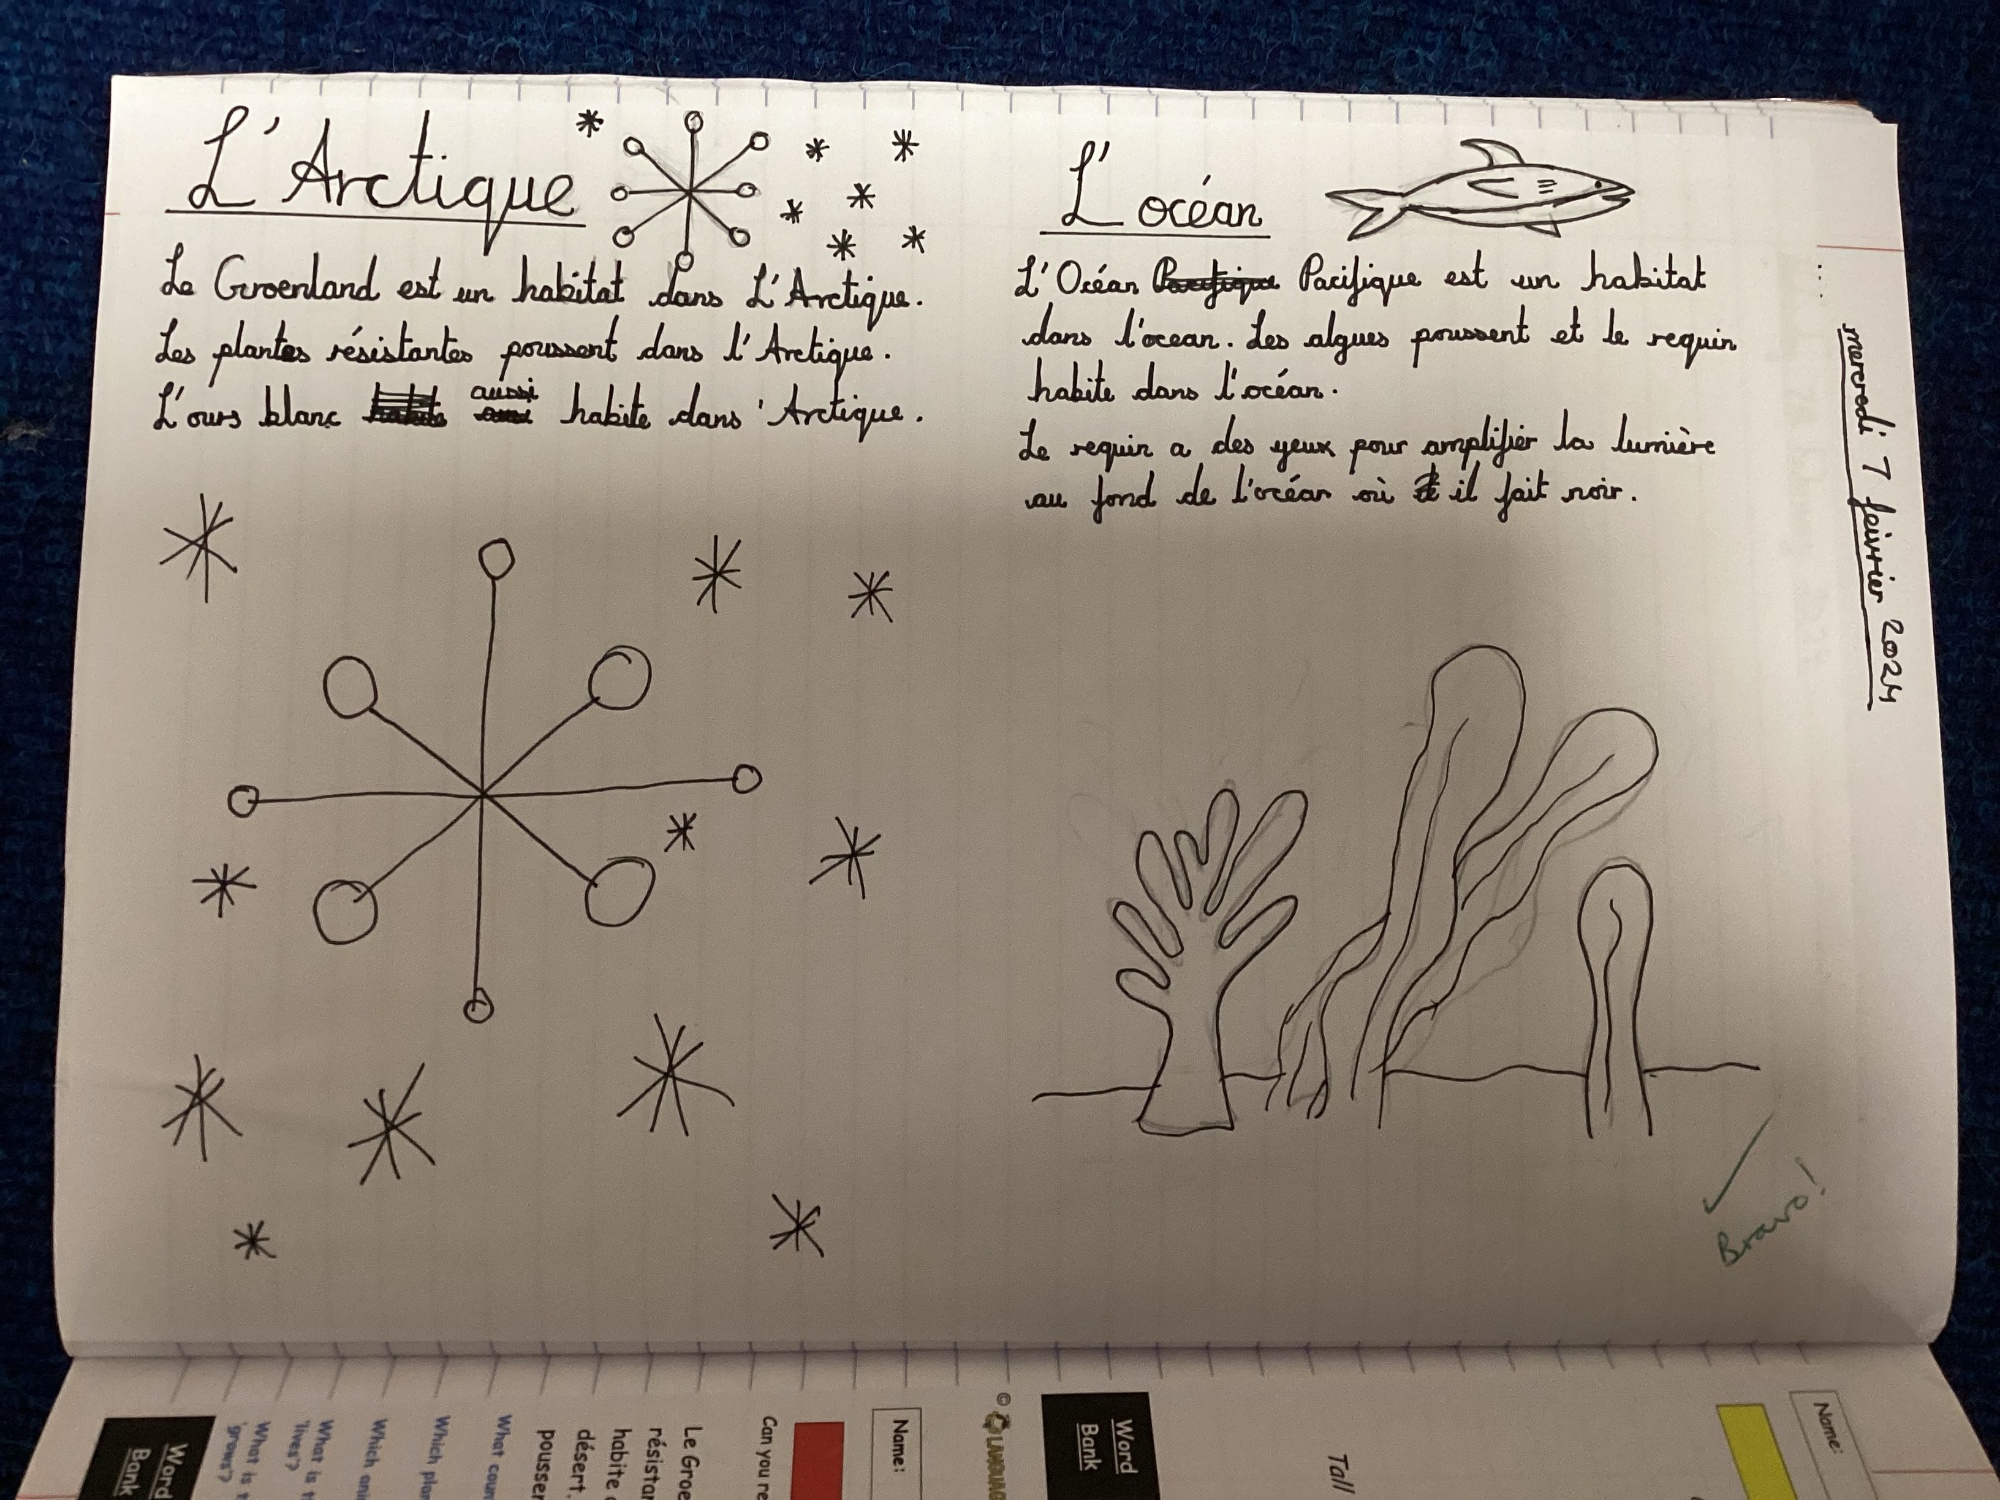 L'Arctique
Le Groenland est un habitat dans L'Arctique.
Les plantes résistantes poussent dans l'Arctique.
L'ours blanc habite aussi habite dans 'Arctique.
L'océan
L'Océan Pacifique est un habitat
dans l'ocean. Les algues poussent et le requin
habite dans l'océan.
Le requin a des yeux pour amplifier la lumière
au fond de l'océan où il fait noir.
mercredi 7 feivrier 2024
Bravo!
Name:
Tall
Word
Bank
©
Name:
Can you re
Le Groe
résistar
habite
désert.
pousser
What coun
Which plan
Which ani
What is t
'lives'?
What is t
'grows'?
Word
Bank